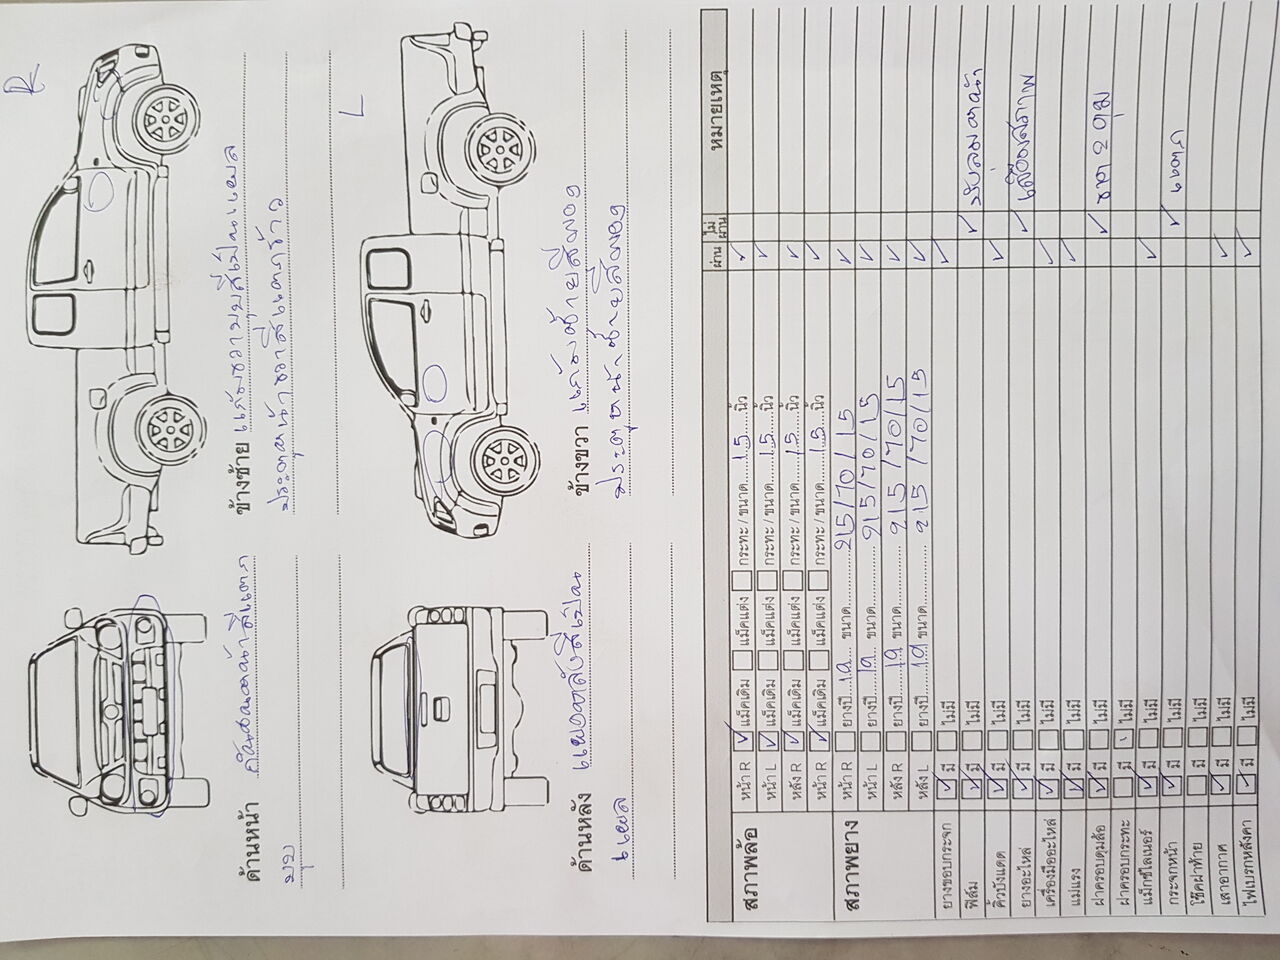 R
ด้านหน้า กันชนหน้าสีแตก
บุบ
ข้างซ้าย แก้มขวามุบสีเป็นแผล
ประตูหน้าขวาสีแตกร้าว
L
ด้านหลัง แผงหลังสีเป็น
แผล
ข้างขวา แก้มซ้ายสีพอง
ประตูหน้าซ้ายสีพอง
ผ่าน ไม่ผ่าน หมายเหตุ
สภาพล้อ หน้า R แม็คเดิม แม็คแต่ง กระทะ / ขนาด 15 นิ้ว
หน้า L แม็คเดิม แม็คแต่ง กระทะ / ขนาด 15 นิ้ว
หลัง R แม็คเดิม แม็คแต่ง กระทะ / ขนาด 15 นิ้ว
หน้า R แม็คเดิม แม็คแต่ง กระทะ / ขนาด 15 นิ้ว
สภาพยาง หน้า R ยางปี 19 ขนาด 215/70/15
หน้า L ยางปี 19 ขนาด 215/70/15
หลัง R ยางปี 19 ขนาด 215/70/15
หลัง L ยางปี 19 ขนาด 215/70/15
ยางขอบกระจก มี ไม่มี
ฟิล์ม มี ไม่มี
คิ้วบังแดด มี ไม่มี
ยางอะไหล่ มี ไม่มี เสื่อมสภาพ
เครื่องมืออะไหล่ มี ไม่มี
แม่แรง มี ไม่มี
ฝาครอบดุมล้อ มี ไม่มี ขาด 2 ดุม
ฝาครอบกระทะ มี ไม่มี
แม็กซ์ไลเนอร์ มี ไม่มี
กระจกหน้า มี ไม่มี แตก
โช๊คฝาท้าย มี ไม่มี
เสาอากาศ มี ไม่มี
ไฟเบรกหลังคา มี ไม่มี